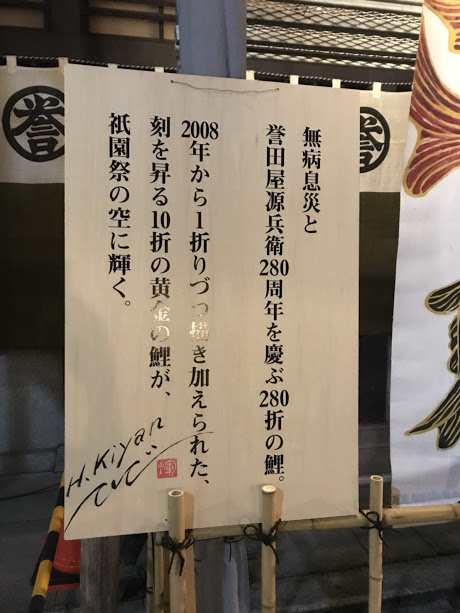 無病息災と
誉田屋源兵衛280周年を慶ぶ280折の鯉。
2008年から1折りづつ描き加えられた、
刻を昇る10折の黄金の鯉が、
祇園祭の空に輝く。
H.Kiyan
誉
誉